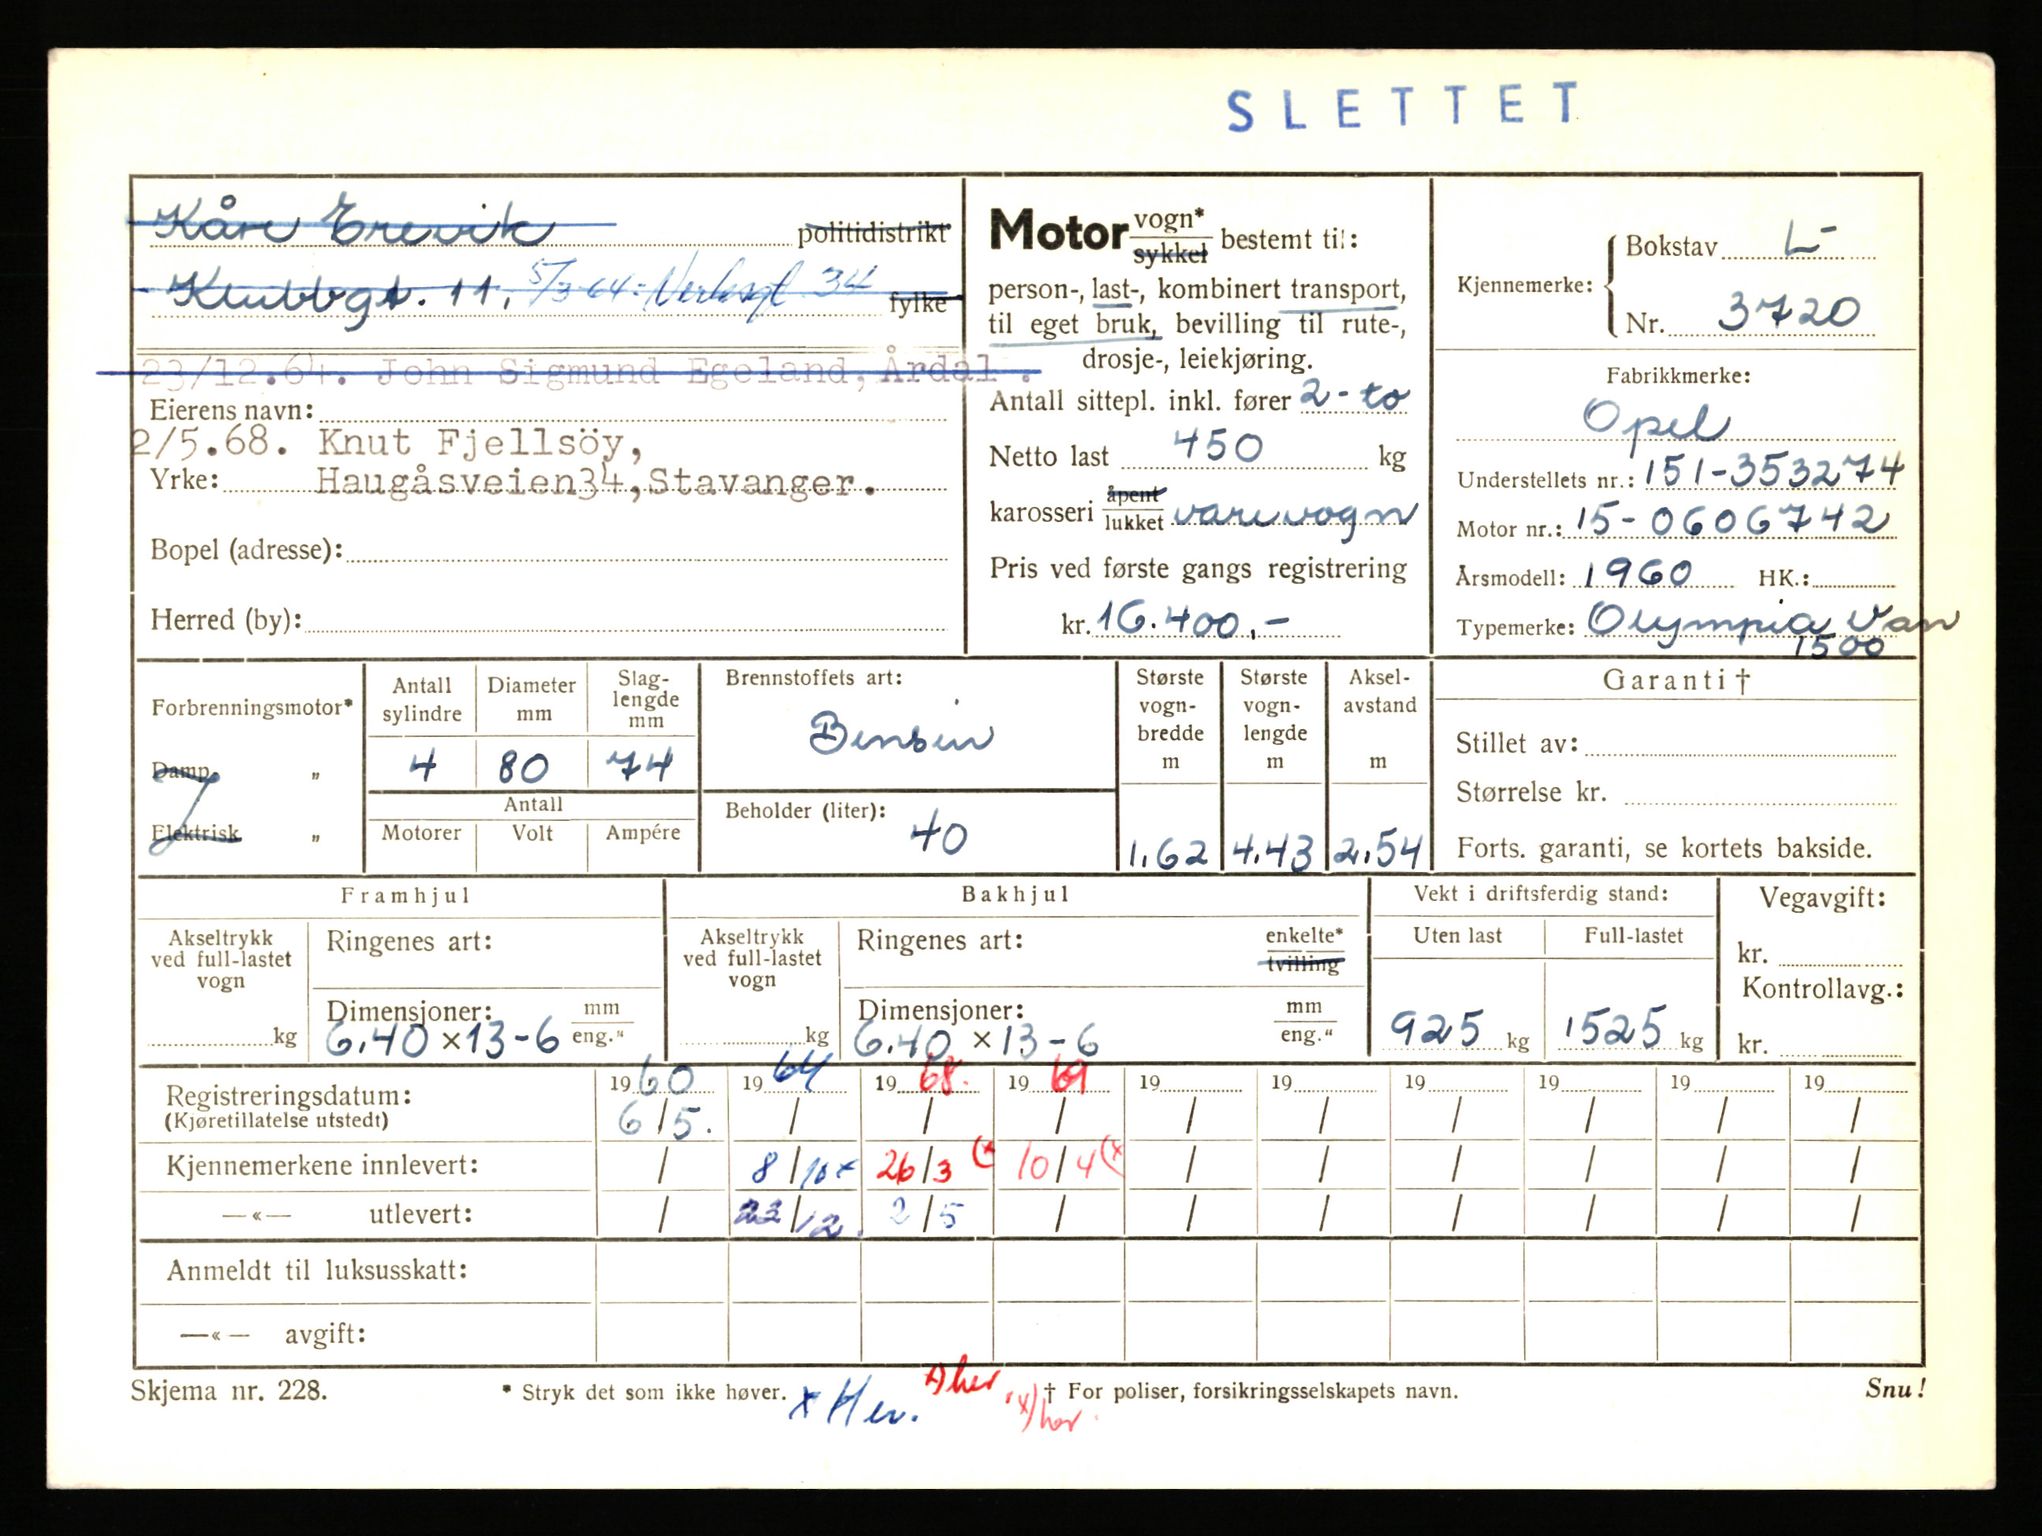 SLETTET
Kåre Erevik politidistrikt
Klubbgt. 11, 5/3 64: 34 fylke
23/12.64. John Sigmund Egeland, Årdal.
Eierens navn:
2/5.68. Knut Fjellsöy,
Yrke: Haugåsveien34, Stavanger.
Bopel (adresse):
Herred (by):
Motor vogn* sykkel bestemt til:
person-, last-, kombinert transport,
til eget bruk, bevilling til rute-,
drosje-, leiekjøring.
Antall sittepl. inkl. fører 2-to
Netto last 450 kg
karosseri åpent lukket varevogn
Pris ved første gangs registrering
kr. 16.400,-
Kjennemerke: Bokstav L-
Nr. 3720
Fabrikkmerke:
Opel
Understellets nr.: 151-353274
Motor nr.: 15-0606742
Årsmodell: 1960 HK.:
Typemerke: Olympia Van
1500
Forbrenningsmotor*
Damp „
Elektrisk „
Antall sylindre Diameter mm Slaglengde mm
4 80 74
Antall
Motorer Volt Ampére
Brennstoffets art:
Bensin
Beholder (liter):
40
Største vogn-bredde m
1.62
Største vogn-lengde m
4.43
Aksel-avstand m
2.54
Garanti †
Stillet av:
Størrelse kr.
Forts. garanti, se kortets bakside.
Framhjul
Akseltrykk ved full-lastet vogn
kg
Ringenes art:
Dimensjoner: mm
6.40 x 13-6 eng."
Bakhjul
Akseltrykk ved full-lastet vogn
kg
Ringenes art: enkelte* tvilling
Dimensjoner: mm
6.40 x 13-6 eng."
Vekt i driftsferdig stand:
Uten last Full-lastet
925 kg 1525 kg
Vegavgift:
kr.
Kontrollavg.:
kr.
Registreringsdatum: 1960 1964 1968. 1969 19 19 19 19 19 19
(Kjøretillatelse utstedt) 6/5. / / / / / / / / /
Kjennemerkene innlevert: / 8/10x 26/3 (x 10/4 (x / / / / / /
—«— utlevert: / 23/12. 2/5 / / / / / / /
Anmeldt til luksusskatt:
—«— avgift:
Skjema nr. 228. * Stryk det som ikke høver. x Her. x) her x) her † For poliser, forsikringsselskapets navn. Snu!